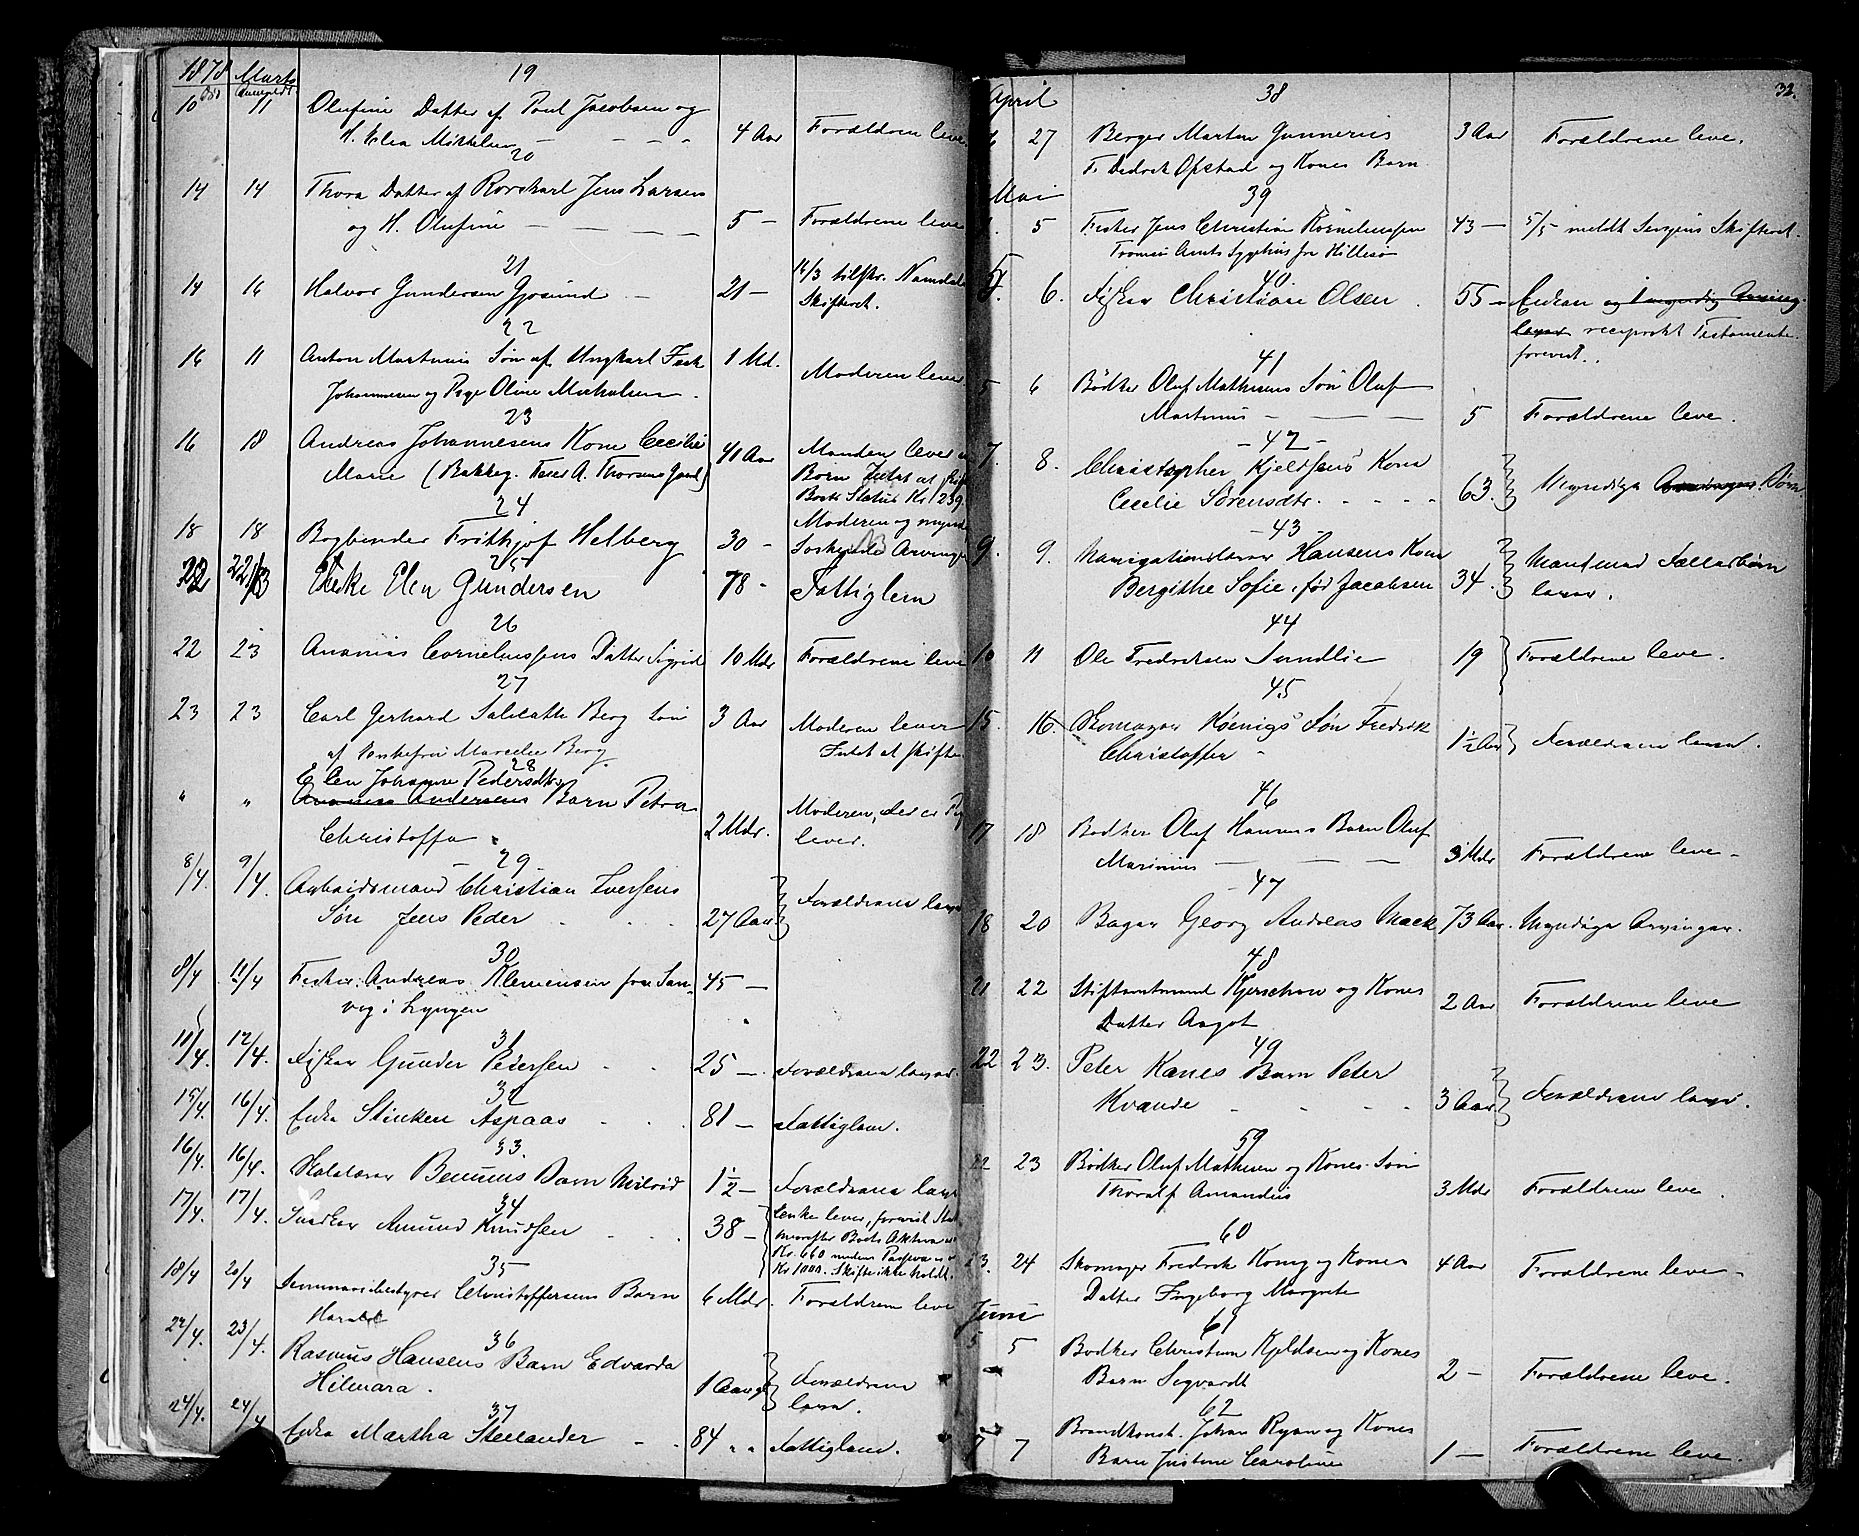 1878 Marts 19
Død Anmeldt
10 11 Olufine Datter af Poul Jacobsen og
H. Elea Mikkelsen — — — 4 Aar Forældrene leve
20
14 14 Thora Datter af Rorskarl Jens Larsen
og H. Olufine — — — 5 — Forældrene leve
21
14 16 Halvor Gundersen Gjøsund — 21 — 14/3 tilskr. Namdals
Skifteret.
22
16 11 Anton Martinius Søn af Ungkarl Fisk
Johannesen og Pige Oline Michalsen. 1 Md. Moderen lever
23
16 18 Andreas Johannesens Kone Cecilie
Marie (Bakkeg. Feier A. Thorsens Gaard) 41 Aar Manden lever
Børn Intet at skif
Boets Status Kr. 239
24
18 18 Bogbinder Frithjof Helberg 30 — Moderen og mynd
Søskende Arvinge
25
22 22/3 Enke Elen Gundersen 78 — Fattiglem
26
22 23 Ananias Corneliussens Datter Sigrid 10 Mdr Forældrene leve
27
23 23 Carl Gerhard Berg Søn
af Marcelie Berg 3 Aar Moderen lever
Intet at skifte
28
Elen Johanne Pedersdtr
" " Ananias Andersens Barn Petra
Christoffa 2 Mdr. Moderen, der er Pig
lever.
29
8/4. 9/4. Arbeidsmand Christian Iversens
Søn Jens Peder 27 Aar Forældrene leve
30
8/4 11/4 Fisker Andreas Klemensen fra San-
vig i Lyngen 45 —
31
11/4. 12/4. Fisker Gunder Pedersen 25 — Forældrene lever.
32
15/4. 16/4. Enke Stinken Aspaas 81 — Fattiglem.
33.
16/4. 16/4. Barn 1 1/2 — Forældrene leve
34
17/4. 17/4. Snedker Amund Knudsen 38 — Enke lever, forevist
hvorefter Boets Aktiva
Kr. 660 medens Passiva
Kr 1000. Skifte ikke holdt.
35
18/4 20/4 Seminariebestyrer Christoffersens Barn
Harald 6 Mdr. Forældrene leve
36
22/4. 23/4. Rasmus Hansens Barn Edvarda
Hilmara. 1 Aar Forældrene
leve.
37
24/4. 24/4 Enke Martha Steelander 84 " " Fattiglem.
32.
April 38
27 Berger Martin Gunnerius
F. Dedrek Opstad og Kones Barn 3 Aar Forældrene leve.
Mai 39
5 Fisker Jens Christian Kornelinssen
Tromsø Amts Sygehus fra Hillesø 43 — 5/5 meldt Senjens Skifteret.
40.
5. 6. Fisker Christian Olsen 55 — Enken og myndig Arving
lever reciprokt Testamente
forevist.
41
5 6 Bødker Oluf Mathisens Søn Oluf
Martinus — — — 5 Forældrene leve.
— 42 —
7. 8. Christopher Kjeldsens Kone
Cecilie Sørensdtr. 63. Myndige Arvinger. Børn
— 43 —
9. 9. Navigationslærer Hansens Kone
Bergithe Sofie, fød Jacobsen 34. Mand med Fællesbørn
lever.
44
10 11 Ole Fredriksen Sundlie 19 Forældrene leve.
45
15. 16. Skomager Køenigs Søn Fredrik
Christoffer 1 1/2 Aar Forældrene lever.
46
17 18 Bødker Oluf Hansens Barn Oluf
Marinius — — — 3 Mdr Forældrene leve —
— 47
18 20 Bager Georg Andreas Mack 73 Aar. Myndige Arvinger.
48
21 22 Stiftamtmand Kjerschow og Kones
Datter Aagot 2 Aar Forældrene leve
49
22 23. Peter Kanes Barn Peter
Kvande 3 Aar Forældrene lever.
59
22 23 Bødker Oluf Mathisen og Kones Søn
Thoralf Amandus 3 Mdr Forældrene leve.
60
23. 24 Skomager Fredrik Konig og Kones
Datter Ingeborg Margrete 4 Aar Forældrene leve —
Juni 61
5 5 Bødker Christian Kjeldsen og Kones
Barn Sigvardt 2 — Forældrene leve.
62
7 7 Brandkonst. Johan Ryan og Kones
Barn Justine Caroline 1 — Forældrene leve.